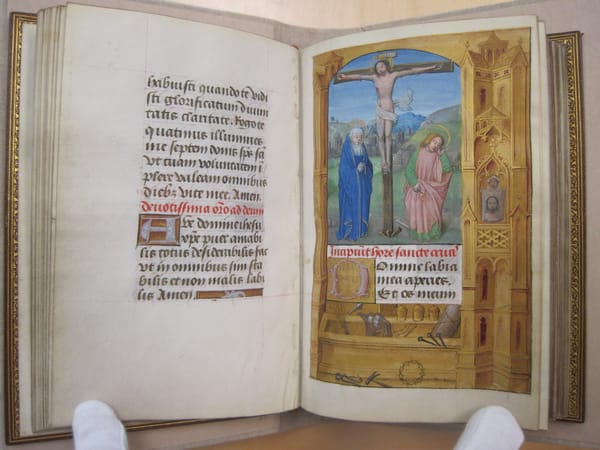 habuisti quando te vidi
sti glorificatum diuini
tatis claritate. Rogo te
quatinus illumines
me septem donis sps sci
vt tuam voluntatem i
plere valeam omnibus
dieb; vite mee. Amen.
deuotissima oro ad deum
Aue domine ihesu
xpe puer amabi
lis totus desiderabilis fac
vt in omnibus sim sta
bilis et non malis labi
lis Amen.
Incipiut hore sancte cruc
Domine labia
mea aperies.
Et os meum